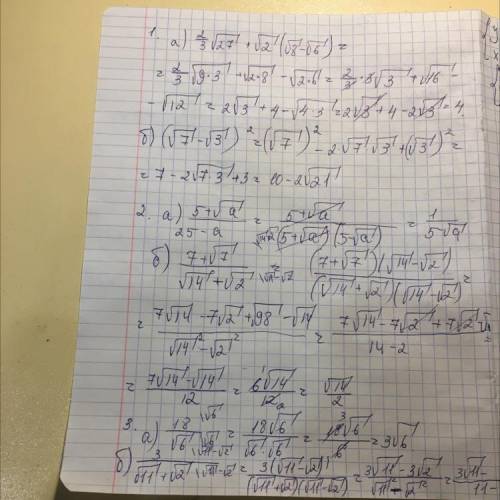 1. а) 2/3 √27 + √2 (√8 - √6) =
= 2/3 √9·3 + √2·8 - √2·6 = 2/3 · 3√3 + √16 -
- √12 = 2√3 + 4 - √4·3 = 2√3 + 4 - 2√3 = 4.
б) (√7 - √3)² = (√7)² - 2√7 √3 + (√3)² =
= 7 - 2√7·3 + 3 = 10 - 2√21
2. а) (5+√a)/(25-a) = (5+√a)/((5+√a)(5-√a)) = 1/(5-√a)
б) (7+√7)/(√14+√2) \√14-√2 = ((7+√7)(√14-√2))/((√14+√2)(√14-√2)) =
= (7√14 - 7√2 + √98 - √14)/(√14² - √2²) = (7√14 - 7√2 + 7√2 - √14)/(14-2) =
= (7√14 - √14)/12 = 6√14/12 = √14/2
3. а) 18/√6 \√6 = 18√6/(√6·√6) = 18√6/6 = 3√6
б) 3/(√11+√2) \√11-√2 = 3(√11-√2)/((√11+√2)(√11-√2)) = (3√11-3√2)/(√11²-√2²) = 3√11-/11-